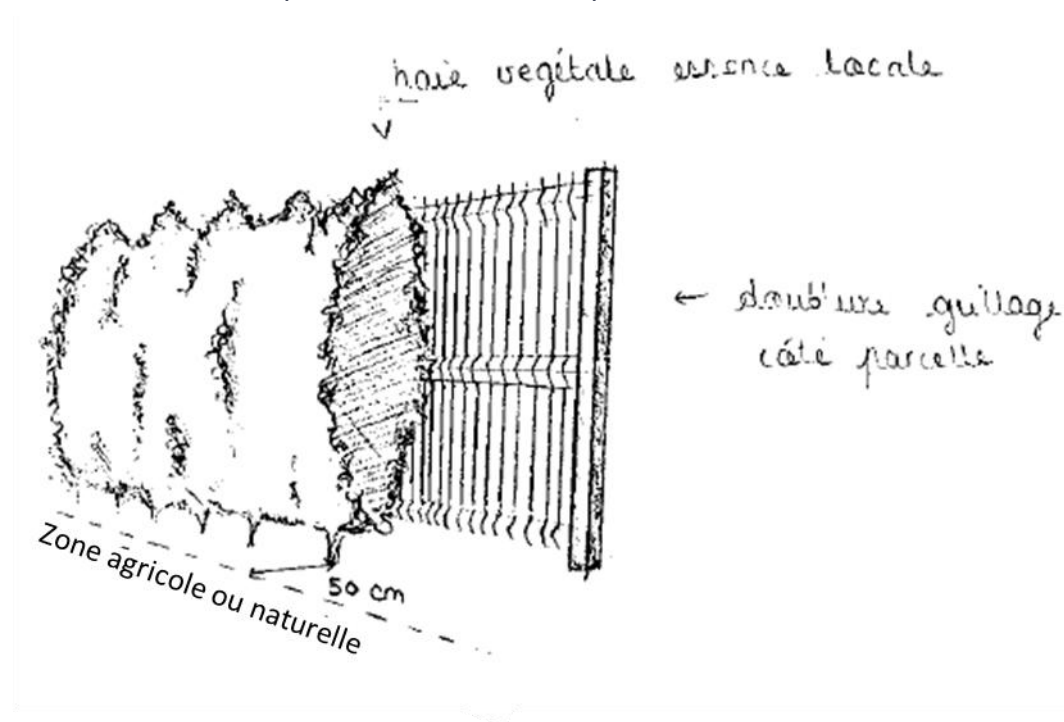 haie vegétale essence locale
doublure grillage
côté parcelle
50 cm
Zone agricole ou naturelle